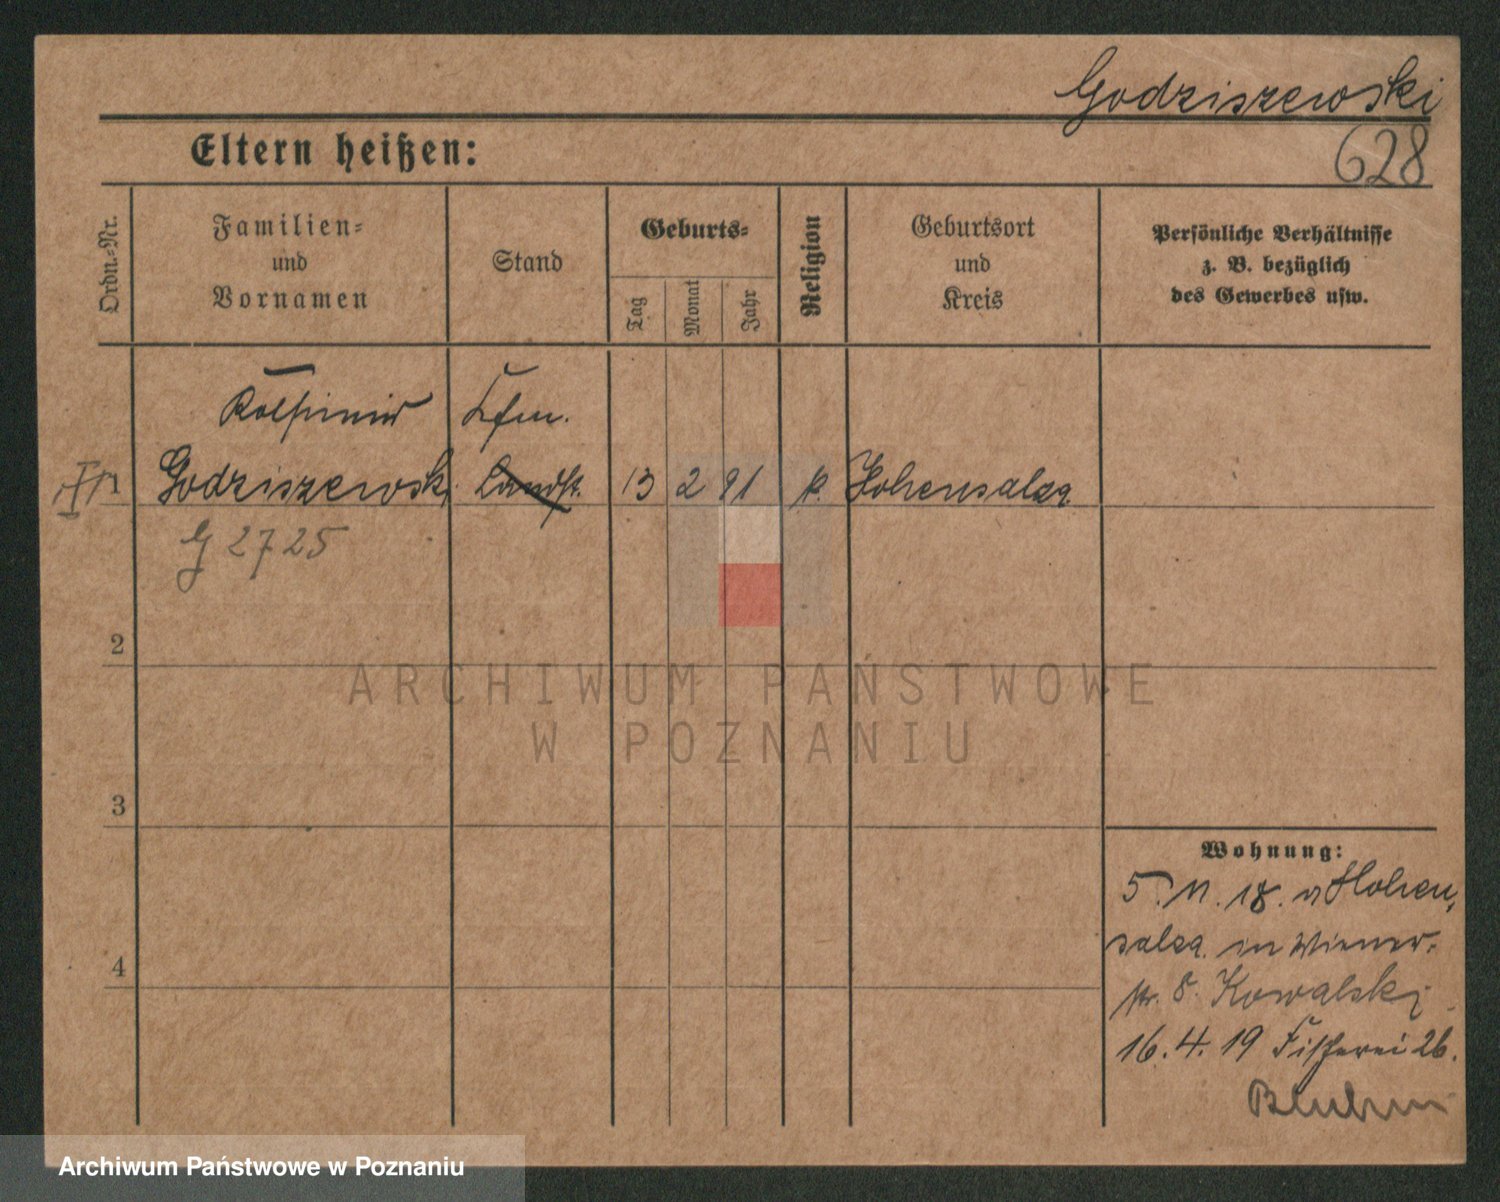 Godziszewski
628
Eltern heißen:
Ordn.-Nr.
Familien-
und
Vornamen
Stand
Geburts-
Tag
Monat
Jahr
Religion
Geburtsort
und
Kreis
Persönliche Verhältnisse
z. B. bezüglich
des Gewerbes usw.
Kfm.
1 Godziszewski Landst. 13 2 91 k. Hohensalza
G 2725
2
ARCHIWUM PAŃSTWOWE
W POZNANIU
3
Wohnung:
5. 11. 18. v Hohen,
salza. in Wiener-
str. 8. Kowalski
4
16. 4. 19 Fischerei 26.
Archiwum Państwowe w Poznaniu